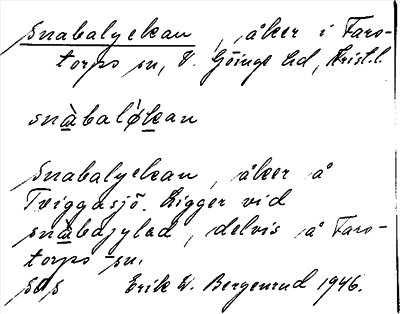 Snabalyckan, åker i Faro-
torps sn, V. Göinge hd, Krist. l.
snàbaló̀kan
Snabalyckan, åker å
Tviggasjö. Ligger vid
snàbajylad, delvis å Faro-
torps sn.
Erik W. Bergenrud 1946.